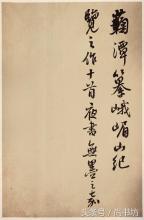 菊潭纂峨嵋山紀
覽之作十首夜書無墨之
头条号/尚书坊